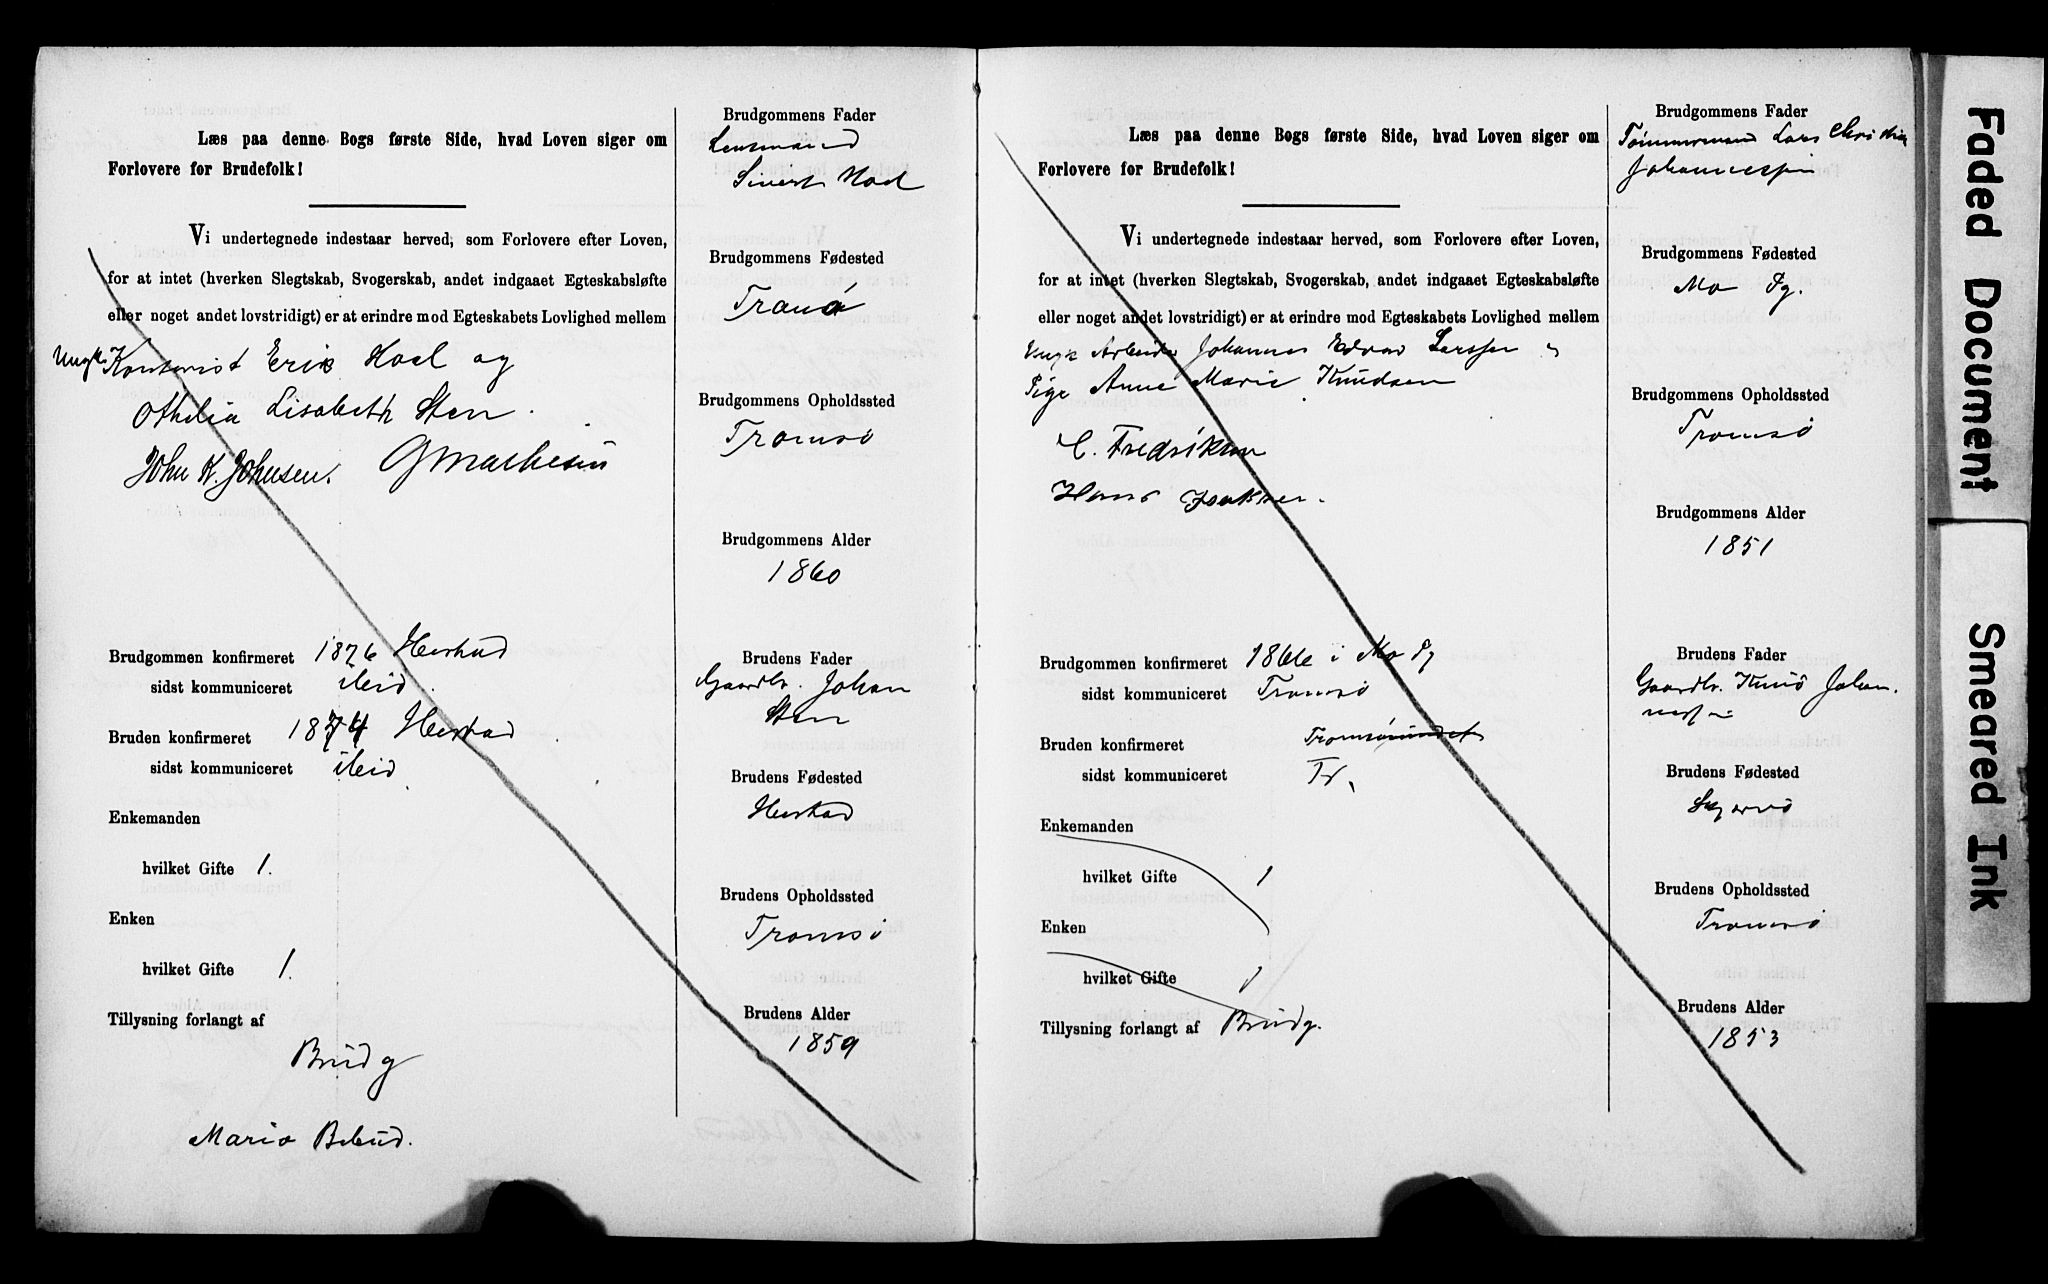 Læs paa denne Bogs første Side, hvad Loven siger om
Forlovere for Brudefolk!
Vi undertegnede indestaar herved, som Forlovere efter Loven,
for at intet (hverken Slegtskab, Svogerskab, andet indgaaet Egteskabsløfte
eller noget andet lovstridigt) er at erindre mod Egteskabets Lovlighed mellem
Ungk. Kontorist Erik Hoel og
Othelia Lisabeth Sten.
John K. Johnsen. G Mathesen
Brudgommen konfirmeret 1876
sidst kommuniceret ibid.
Bruden konfirmeret 1874
sidst kommuniceret ibid
Enkemanden
hvilket Gifte 1.
Enken
hvilket Gifte 1.
Tillysning forlangt af
Brudg
Maria
Brudgommens Fader
Lensmand
Sivert Hoel
Brudgommens Fødested
Tranø
Brudgommens Opholdssted
Tromsø
Brudgommens Alder
1860
Brudens Fader
Gaardbr. Johan
Sten
Brudens Fødested
Brudens Opholdssted
Tromsø
Brudens Alder
1859
Læs paa denne Bogs første Side, hvad Loven siger om
Forlovere for Brudefolk!
Vi undertegnede indestaar herved, som Forlovere efter Loven,
for at intet (hverken Slegtskab, Svogerskab, andet indgaaet Egteskabsløfte
eller noget andet lovstridigt) er at erindre mod Egteskabets Lovlighed mellem
Ungk. Arbeider Johannes Edvar Larssen o
Pige Anne Marie Knudsen
C. Fredriksen
Hans Isaksen.
Brudgommen konfirmeret 1866 i Mo Pg
sidst kommuniceret Tromsø
Bruden konfirmeret Tromsøsundet
sidst kommuniceret Tr.
Enkemanden
hvilket Gifte 1
Enken
hvilket Gifte 1
Tillysning forlangt af Brudg.
Brudgommens Fader
Tømmermand Lars Christian
Johannessen
Brudgommens Fødested
Mo Pg.
Brudgommens Opholdssted
Tromsø
Brudgommens Alder
1851
Brudens Fader
Gaardbr. Knud Johan-
nessen
Brudens Fødested
Skjervø
Brudens Opholdssted
Tromsø
Brudens Alder
1853
Faded Document
Smeared Ink